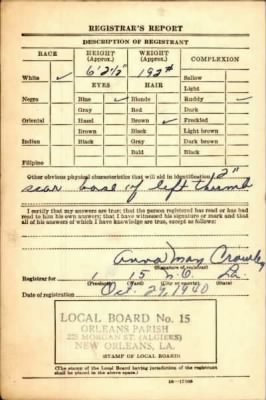 REGISTRAR'S REPORT
DESCRIPTION OF REGISTRANT
RACE HEIGHT (Approx.) WEIGHT (Approx.) COMPLEXION
6' 2½" 192#
White ✓ Sallow
EYES HAIR Light
Negro Blue ✓ Blonde Ruddy ✓
Gray Red Dark
Oriental Hazel Brown ✓ Freckled
Brown Black Light brown
Indian Black Gray Dark brown
Bald Black
Filipino
Other obvious physical characteristics that will aid in identification 2"
scar base of left thumb
I certify that my answers are true; that the person registered has read or has had
read to him his own answers; that I have witnessed his signature or mark and that
all of his answers of which I have knowledge are true, except as follows:
Anna May
(Signature of registrar)
Registrar for 1 15 N.O. La.
(Precinct) (Ward) (City or county) (State)
Date of registration Oct. 29, 1940
LOCAL BOARD No. 15
ORLEANS PARISH
225 MORGAN ST. (ALGIERS)
NEW ORLEANS, LA.
(STAMP OF LOCAL BOARD)
(The stamp of the Local Board having jurisdiction of the registrant
shall be placed in the above space.)